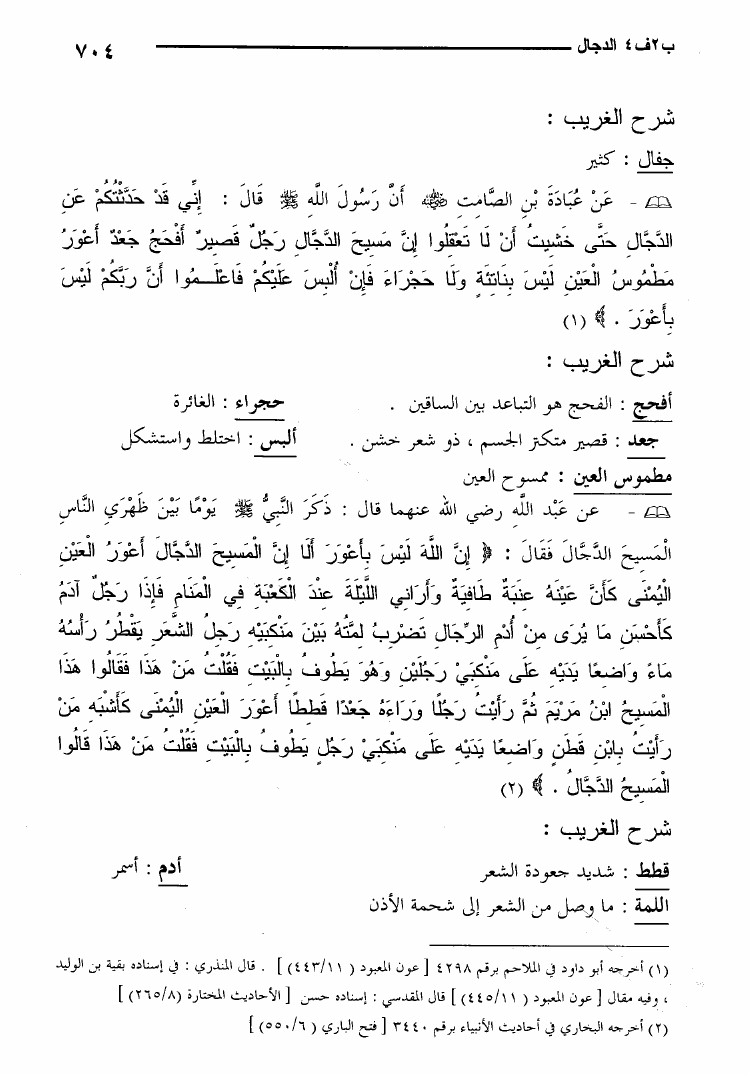 ب٢ف٤ الدجال ٧٠٤
شرح الغريب :
جفال : كثير
- عَنْ عُبَادَةَ بْنِ الصَّامِتِ ﷺ أَنَّ رَسُولَ اللَّهِ ﷺ قَالَ : إِنِّي قَدْ حَدَّثْتُكُمْ عَنِ
الدَّجَّالِ حَتَّى خَشِيتُ أَنْ لَا تَعْقِلُوا إِنَّ مَسِيحَ الدَّجَّالِ رَجُلٌ قَصِيرٌ أَفْحَجُ جَعْدٌ أَعْوَرُ
مَطْمُوسُ الْعَيْنِ لَيْسَ بِنَاتِئَةٍ وَلَا حَجْرَاءَ فَإِنْ أُلْبِسَ عَلَيْكُمْ فَاعْلَـمُوا أَنَّ رَبَّكُمْ لَيْسَ
بِأَعْوَرَ . ﴾ (١)
شرح الغريب :
أفحج : الفحج هو التباعد بين الساقين . حجراء : الغائرة
جعد : قصير متكتر الجسم ، ذو شعر خشن . ألبس : اختلط واستشكل
مطموس العين : ممسوح العين
- عن عَبْد اللَّهِ رضي الله عنهما قال : ذَكَرَ النَّبِيُّ ﷺ يَوْمًا بَيْنَ ظَهْرَيِ النَّاسِ
الْمَسِيحَ الدَّجَّالَ فَقَالَ : ﴿ إِنَّ اللَّهَ لَيْسَ بِأَعْوَرَ أَلَا إِنَّ الْمَسِيحَ الدَّجَّالَ أَعْوَرُ الْعَيْنِ
الْيُمْنَى كَأَنَّ عَيْنَهُ عِنَبَةٌ طَافِيَةٌ وَأَرَانِي اللَّيْلَةَ عِنْدَ الْكَعْبَةِ فِي الْمَنَامِ فَإِذَا رَجُلٌ آدَمُ
كَأَحْسَنِ مَا يُرَى مِنْ أُدْمِ الرِّجَالِ تَضْرِبُ لِمَّتُهُ بَيْنَ مَنْكِبَيْهِ رَجِلُ الشَّعَرِ يَقْطُرُ رَأْسُهُ
مَاءً وَاضِعًا يَدَيْهِ عَلَى مَنْكِبَيْ رَجُلَيْنِ وَهُوَ يَطُوفُ بِالْبَيْتِ فَقُلْتُ مَنْ هَذَا فَقَالُوا هَذَا
الْمَسِيحُ ابْنُ مَرْيَمَ ثُمَّ رَأَيْتُ رَجُلًا وَرَاءَهُ جَعْدًا قَطِطًا أَعْوَرَ الْعَيْنِ الْيُمْنَى كَأَشْبَهِ مَنْ
رَأَيْتُ بِابْنِ قَطَنٍ وَاضِعًا يَدَيْهِ عَلَى مَنْكِبَيْ رَجُلٍ يَطُوفُ بِالْبَيْتِ فَقُلْتُ مَنْ هَذَا قَالُوا
الْمَسِيحُ الدَّجَّالُ . ﴾ (٢)
شرح الغريب :
قطط : شديد جعودة الشعر أدم : أسمر
اللمة : ما وصل من الشعر إلى شحمة الأذن
(١) أخرجه أبو داود في الملاحم برقم ٤٢٩٨ [ عون المعبود ( ٤٤٣/١١) ] . قال المنذري : في إسناده بقية بن الوليد
، وفيه مقال [ عون المعبود ( ٤٤٥/١١) ] قال المقدسي : إسناده حسن [ الأحاديث المختارة (٢٦٥/٨) ]
(٢) أخرجه البخاري في أحاديث الأنبياء برقم ٣٤٤٠ [ فتح الباري ( ٥٥٠/٦) ]